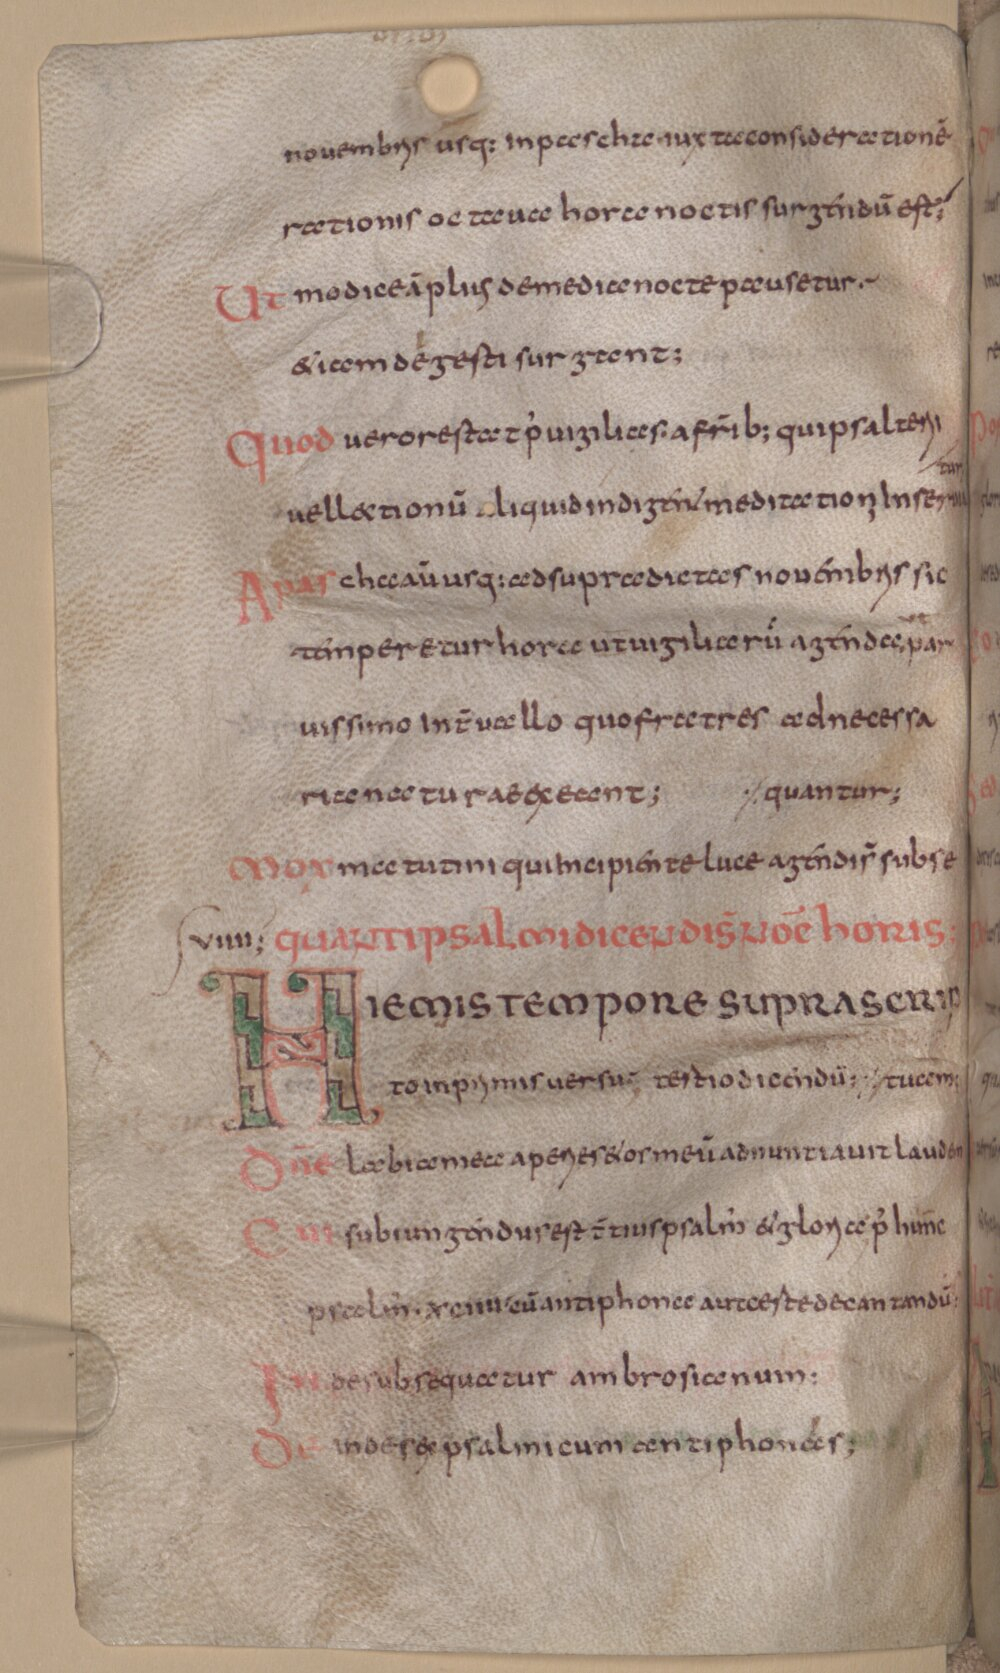 novembris usq: in pascha iuxta consideratione̅
rationis octava hora noctis surgendu̅ est;
Ut modice a̅plius de media nocte pausetur.
& iam degesti surgant;
Quod vero restat p̓ vigilias. a fr̅ib; qui psalterii
vel lectionu̅ aliquid indigen̅t meditationi inserviatur
A pascha au̅ usq: ad supradictas novembris sic
temperetur hora ut vigiliaru̅ agenda. ut par
vissimo int̅vallo quo fratres ad necessa
ria naturae exeant; quantur;
Mox matutini qui incipiente luce agendis̅ subse
VIIII; QUANTI PSALMI DICENDIS̅ NOC̅ HORIS;
HIEMIS TEMPORE SUPRASCRIP
to inprimis versu; tertio dicendu̅; tuam;
Dn̅e labia mea aperies & os meu̅ adnuntiavit laudem
Cui subiungendus est t̅tius psalm̅ & gloria p̓ hunc̅
psalm̅. xciiii cu̅ antiphona aut certe decantandu̅;
Inde subsequatur ambrosianum;
Deinde sex psalmi cum antiphonas;